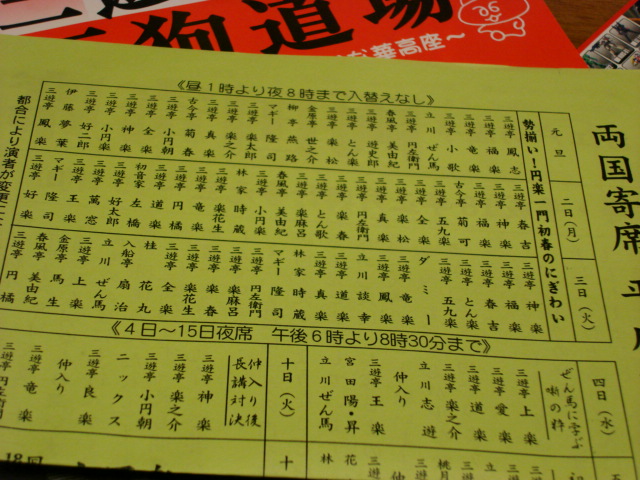 天狗道場
お華高座〜
両国寄席
《昼1時より夜8時まで入替えなし》
元旦
勢揃い!円楽一門初春のにぎわい
三遊亭 鳳志
三遊亭 福楽
三遊亭 竜楽
三遊亭 小歌
立川 ぜん馬
三遊亭 円左衛門
春風亭 美由紀
三遊亭 遊史郎
三遊亭 とん楽
三遊亭 楽松
金原亭 世之介
柳亭 燕路
マギー 隆司
三遊亭 楽太郎
三遊亭 楽之介
三遊亭 真楽
古今亭 菊春
三遊亭 小円朝
三遊亭 全楽
三遊亭 神楽
三遊亭 小円楽
三遊亭 好二郎
伊藤 夢葉
三遊亭 鳳楽
二日(月)
三遊亭 春吉
三遊亭 神楽
三遊亭 福楽
古今亭 菊可
三遊亭 五九楽
三遊亭 全楽
三遊亭 楽松
三遊亭 真楽
三遊亭 円左衛門
三遊亭 楽春
三遊亭 楽麻呂
三遊亭 とん歌
春風亭 美由紀
三遊亭 小円楽
林家 時蔵
三遊亭 楽花生
三遊亭 竜楽
三遊亭 円橘
三遊亭 道楽
初音家 左橋
三遊亭 好太郎
三遊亭 萬窓
三遊亭 王楽
マギー 隆司
三遊亭 好楽
三日(火)
三遊亭 神楽
三遊亭 とん楽
三遊亭 春吉
三遊亭 五九楽
ダミー
三遊亭 竜楽
三遊亭 鳳楽
立川 談幸
三遊亭 道楽
三遊亭 真楽
林家 時蔵
マギー 隆司
三遊亭 円左衛門
三遊亭 楽麻呂
三遊亭 楽花生
三遊亭 全楽
桂 花丸
入船亭 扇治
立川 ぜん馬
三遊亭 上楽
金原亭 馬生
春風亭 美由紀
三遊亭 円橘
都合により演者が変更
《4日〜15日夜席 午後6時より8時30分まで》
四日(水)
ぜん馬に学ぶ
噺の粋
三遊亭 上楽
三遊亭 愛楽
三遊亭 道楽
三遊亭 楽之介
立川 志遊
仲入り
三遊亭 王楽
宮田 陽・昇
立川 ぜん馬
十日(火)
仲入り後
長講対決
三遊亭 神楽
三遊亭 楽之介
三遊亭 小円朝
ニックス
三遊亭 良楽
仲入り
三遊亭 竜楽
三遊亭 円左衛門